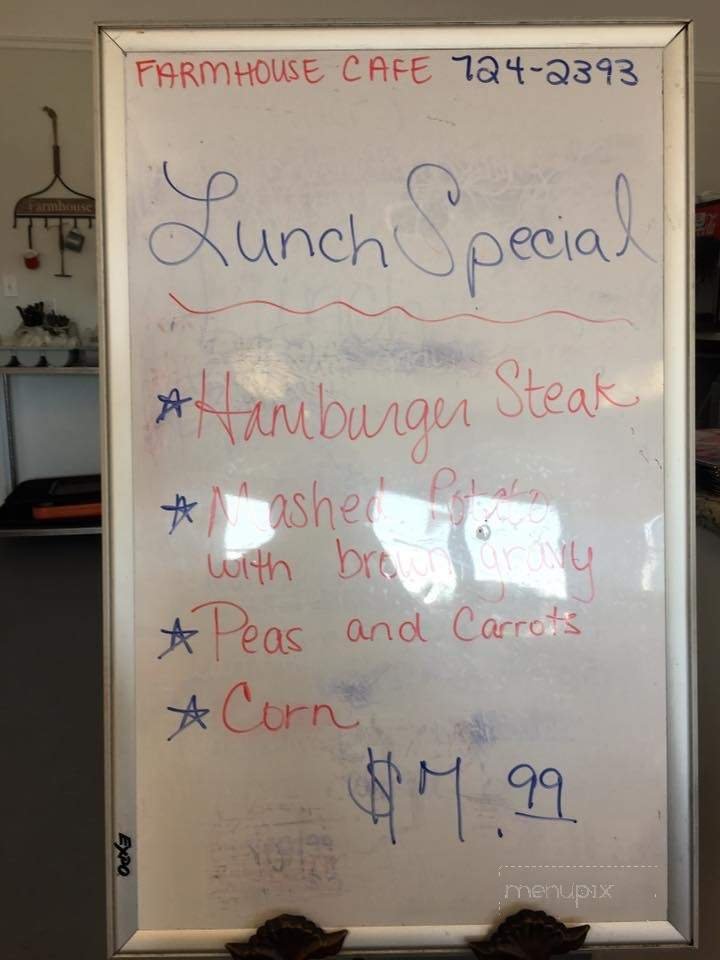 FARMHOUSE CAFE 724-2393
Lunch Special
Hamburger Steak
Mashed Potato
with brown gravy
Peas and Carrots
Corn
$7.99
EXPO
Farmhouse
menupix